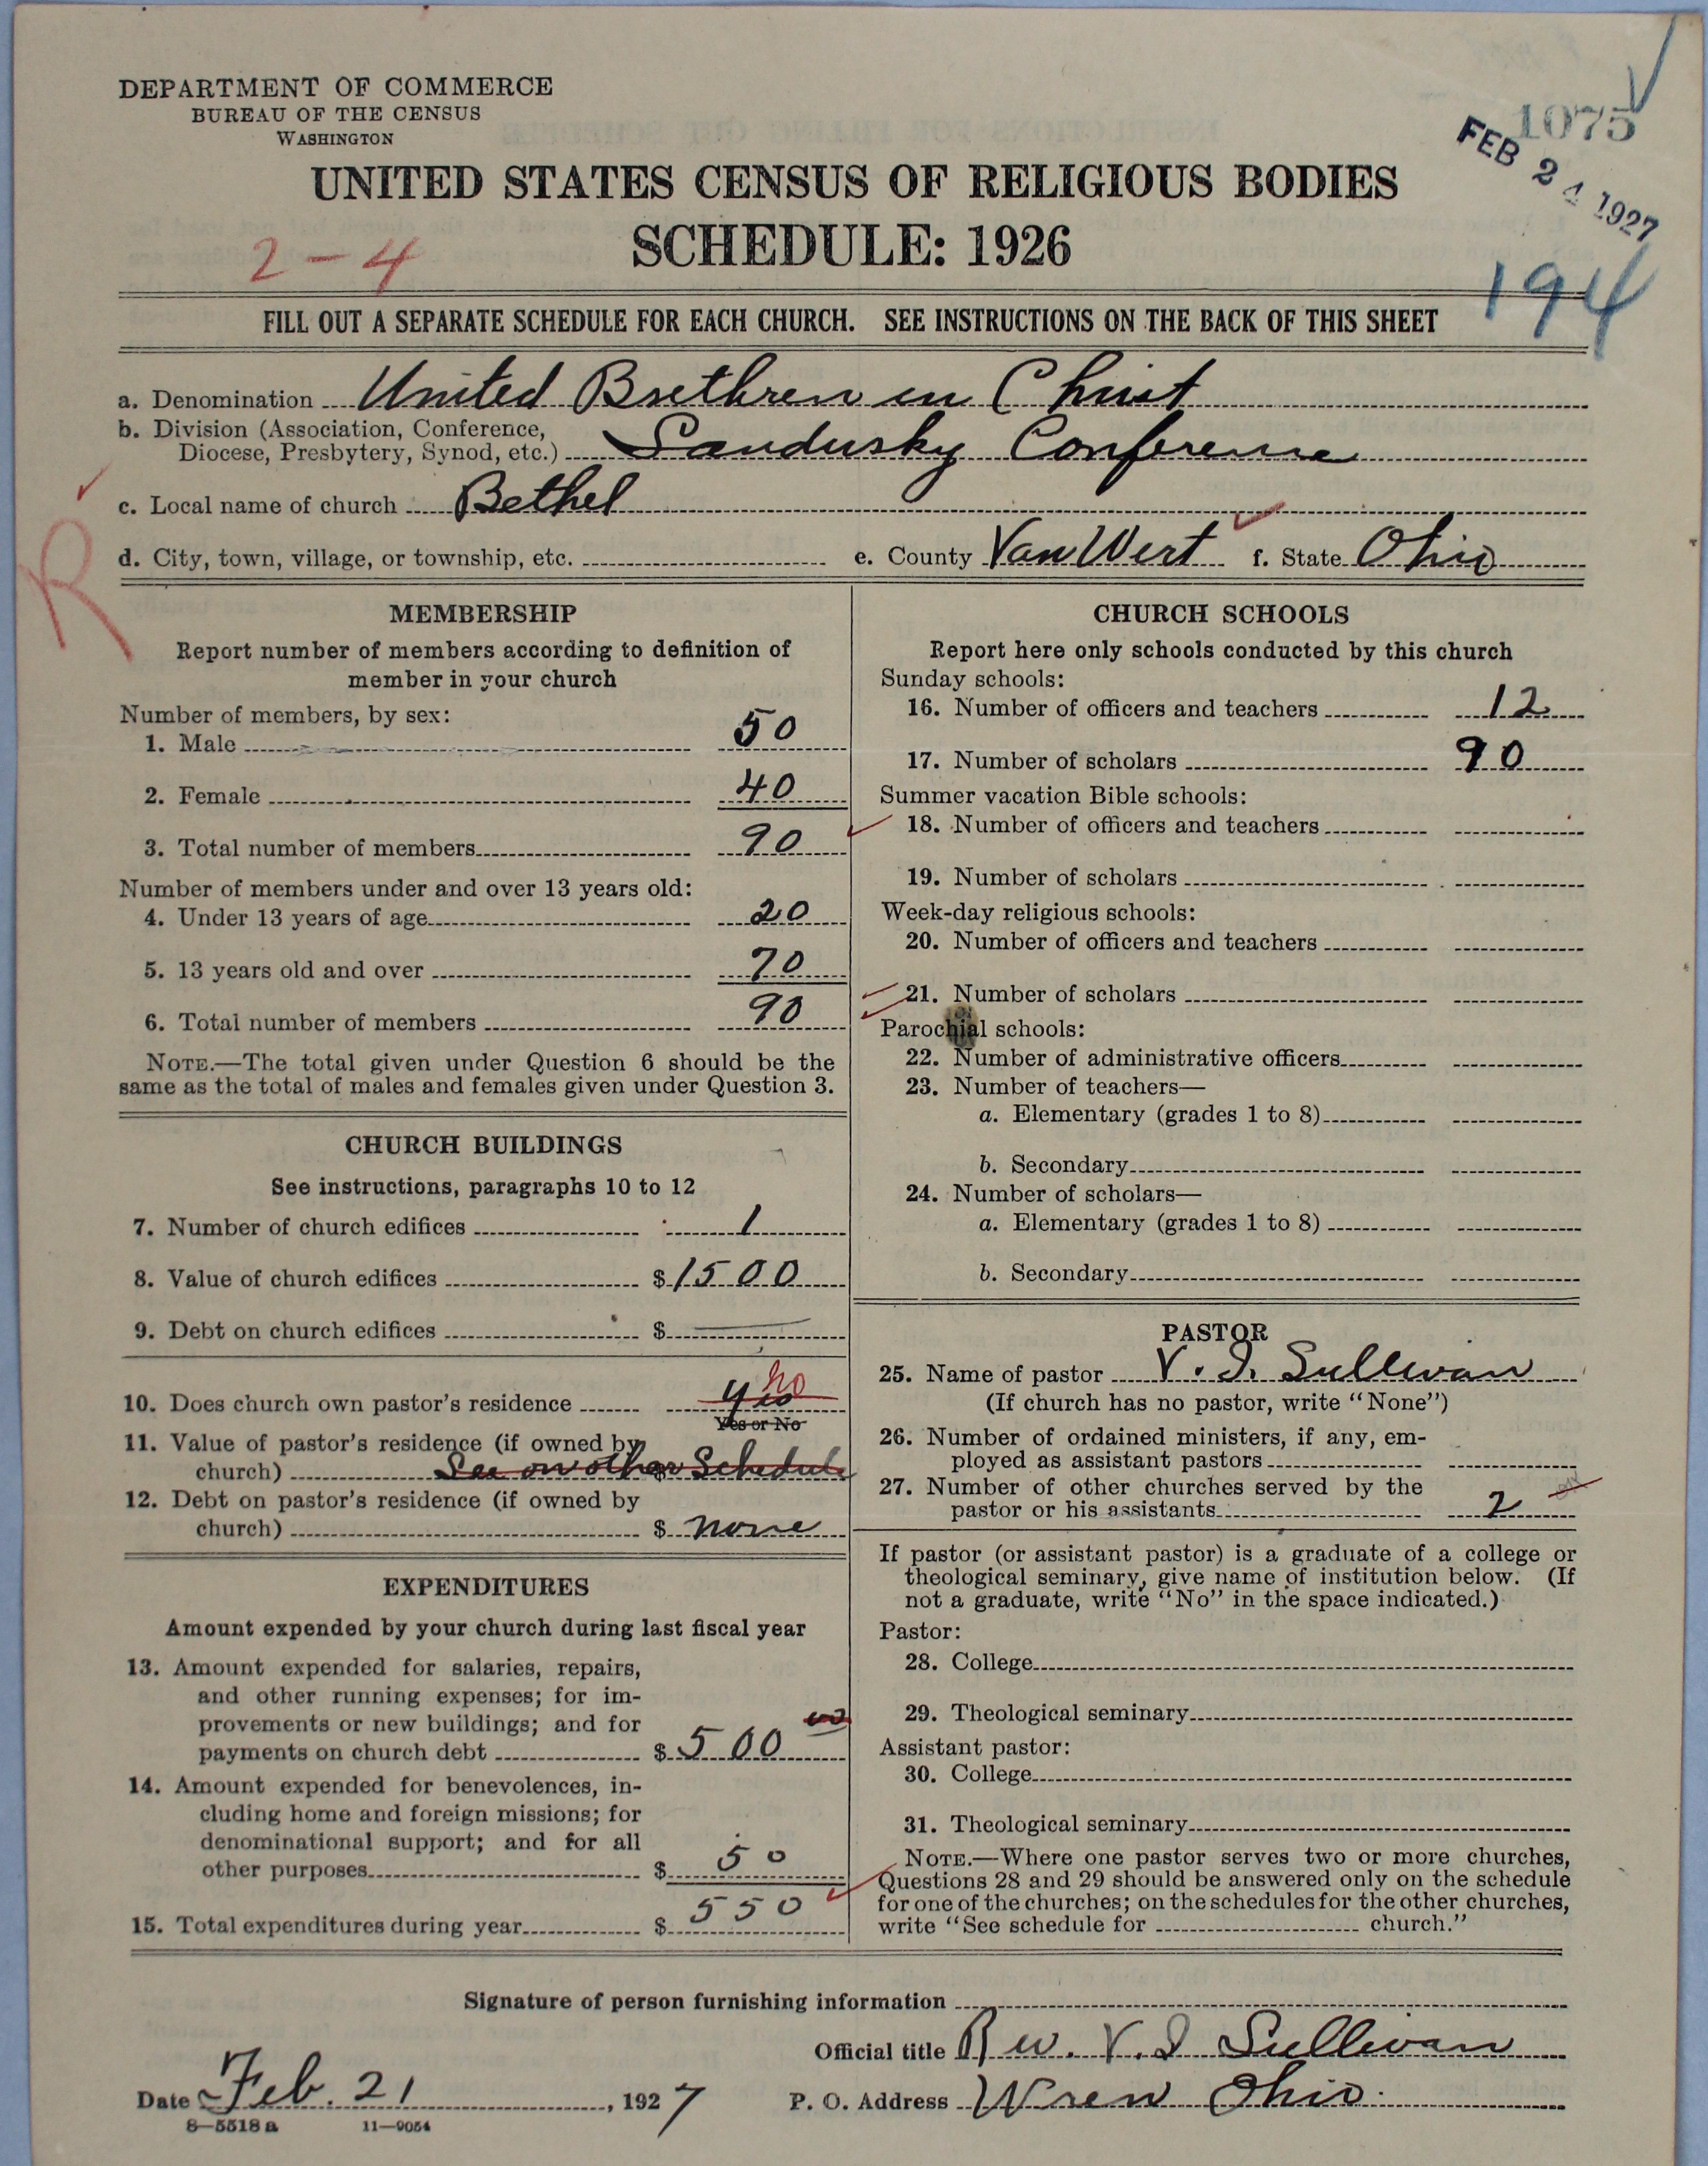 DEPARTMENT OF COMMERCE
BUREAU OF THE CENSUS
WASHINGTON
1075
FEB 24 1927
UNITED STATES CENSUS OF RELIGIOUS BODIES
SCHEDULE: 1926
2-4
194
FILL OUT A SEPARATE SCHEDULE FOR EACH CHURCH. SEE INSTRUCTIONS ON THE BACK OF THIS SHEET
a. Denomination United Brethren in Christ
b. Division (Association, Conference,
Diocese, Presbytery, Synod, etc.) Sandusky Conference
c. Local name of church Bethel
R
d. City, town, village, or township, etc. e. County Van Wert f. State Ohio
MEMBERSHIP
Report number of members according to definition of
member in your church
Number of members, by sex:
1. Male 50
2. Female 40
3. Total number of members 90
Number of members under and over 13 years old:
4. Under 13 years of age 20
5. 13 years old and over 70
6. Total number of members 90
NOTE.—The total given under Question 6 should be the
same as the total of males and females given under Question 3.
CHURCH BUILDINGS
See instructions, paragraphs 10 to 12
7. Number of church edifices 1
8. Value of church edifices $ 1500
9. Debt on church edifices $ —
10. Does church own pastor's residence yes no
Yes or No
11. Value of pastor's residence (if owned by
church) See on other Schedule
12. Debt on pastor's residence (if owned by
church) $ none
EXPENDITURES
Amount expended by your church during last fiscal year
13. Amount expended for salaries, repairs,
and other running expenses; for im-
provements or new buildings; and for
payments on church debt $ 500 00
14. Amount expended for benevolences, in-
cluding home and foreign missions; for
denominational support; and for all
other purposes $ 50
15. Total expenditures during year $ 550
CHURCH SCHOOLS
Report here only schools conducted by this church
Sunday schools:
16. Number of officers and teachers 12
17. Number of scholars 90
Summer vacation Bible schools:
18. Number of officers and teachers
19. Number of scholars
Week-day religious schools:
20. Number of officers and teachers
21. Number of scholars
Parochial schools:
22. Number of administrative officers
23. Number of teachers—
a. Elementary (grades 1 to 8)
b. Secondary
24. Number of scholars—
a. Elementary (grades 1 to 8)
b. Secondary
PASTOR
25. Name of pastor V. I. Sullivan
(If church has no pastor, write "None")
26. Number of ordained ministers, if any, em-
ployed as assistant pastors
27. Number of other churches served by the
pastor or his assistants 2
If pastor (or assistant pastor) is a graduate of a college or
theological seminary, give name of institution below. (If
not a graduate, write "No" in the space indicated.)
Pastor:
28. College
29. Theological seminary
Assistant pastor:
30. College
31. Theological seminary
NOTE.—Where one pastor serves two or more churches,
Questions 28 and 29 should be answered only on the schedule
for one of the churches; on the schedules for the other churches,
write "See schedule for church."
Signature of person furnishing information
Official title Rev. V. I Sullivan
Date Feb. 21, 1927 P. O. Address Wren Ohio.
8—5518 a 11—9054